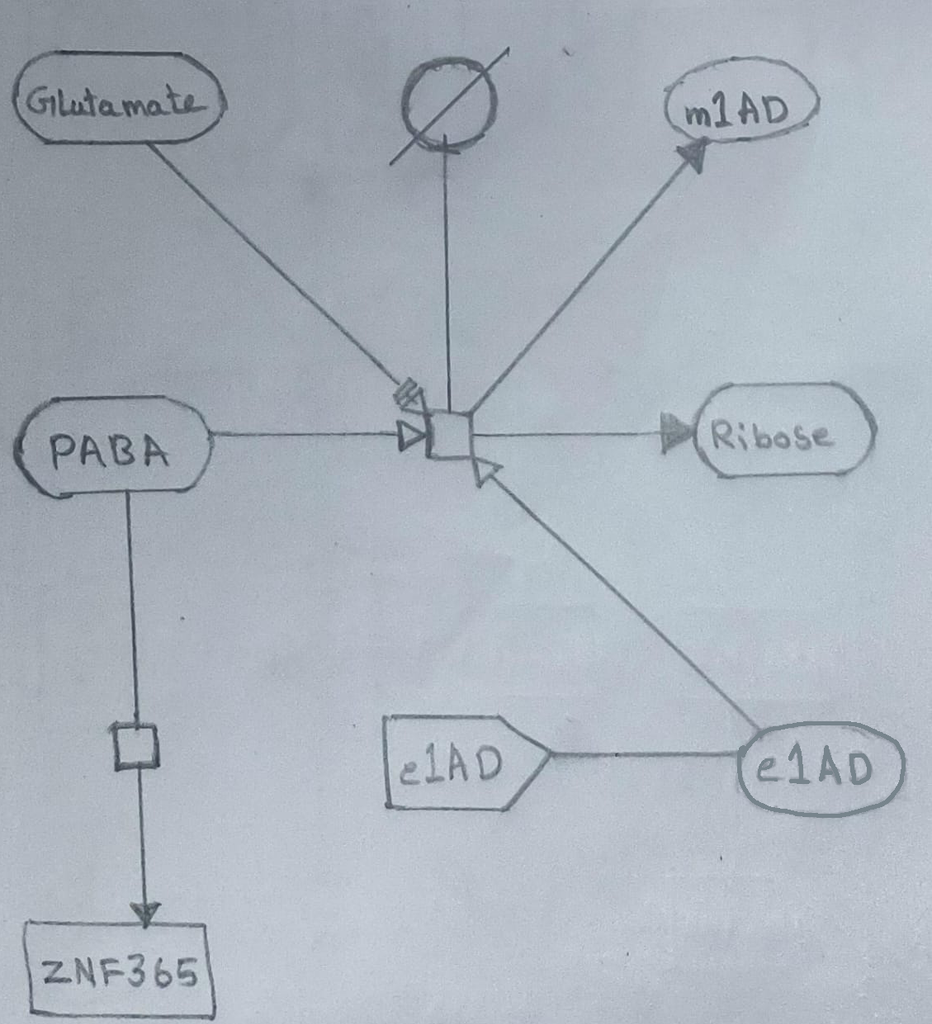 Glutamate
m1AD
PABA
Ribose
e1AD
e1AD
ZNF365